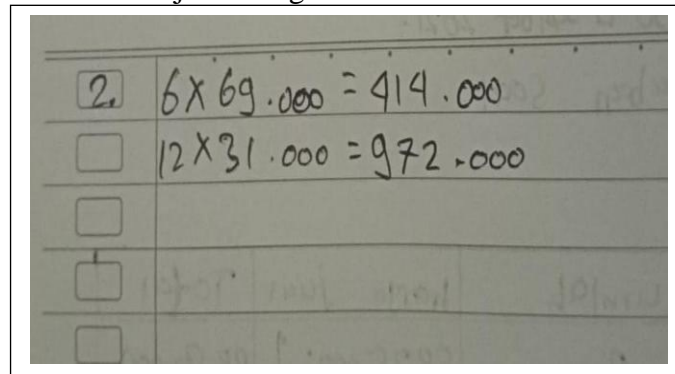 2. 6 x 69.000 = 414.000
12 x 31.000 = 972.000